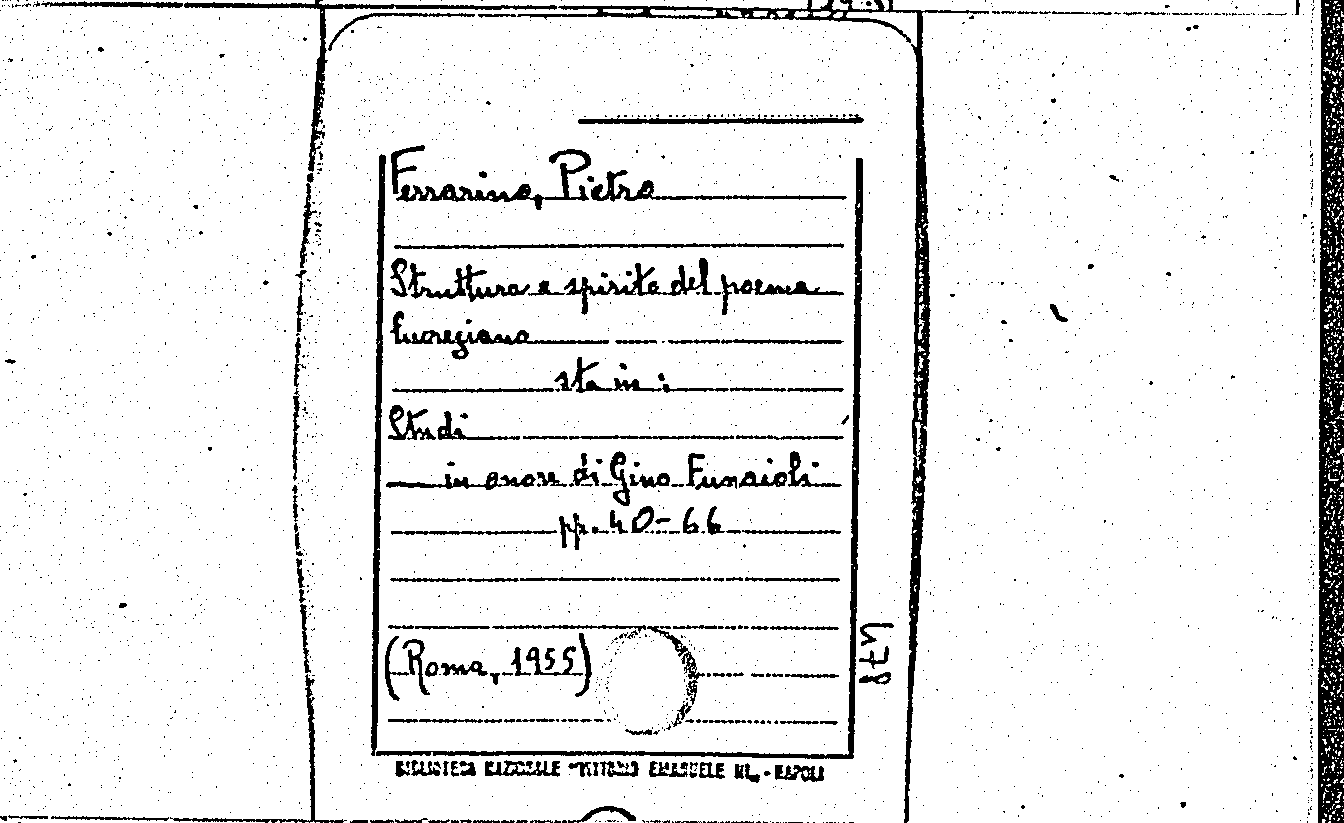 Ferrarino, Pietro
Struttura e spirito del poema
lucreziano
sta in :
Studi
— in onore di Gino Funaioli
pp. 40-66
(Roma, 1955)
BIBLIOTECA NAZIONALE "VITTORIO EMANUELE III„ - NAPOLI